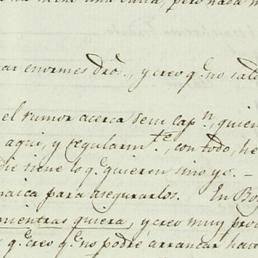 una carta, pero nada
ar enormes dro., y creo q.e no sald
el rumor acerca sem capn, quien
aqui, y regularmte, con todo, he
die tiene lo q.e quieren sino ye. –
paica para asegurarlos. En Bo
mientras quiera, y creo muy pro
q.e creo q.e no podré arrancar have